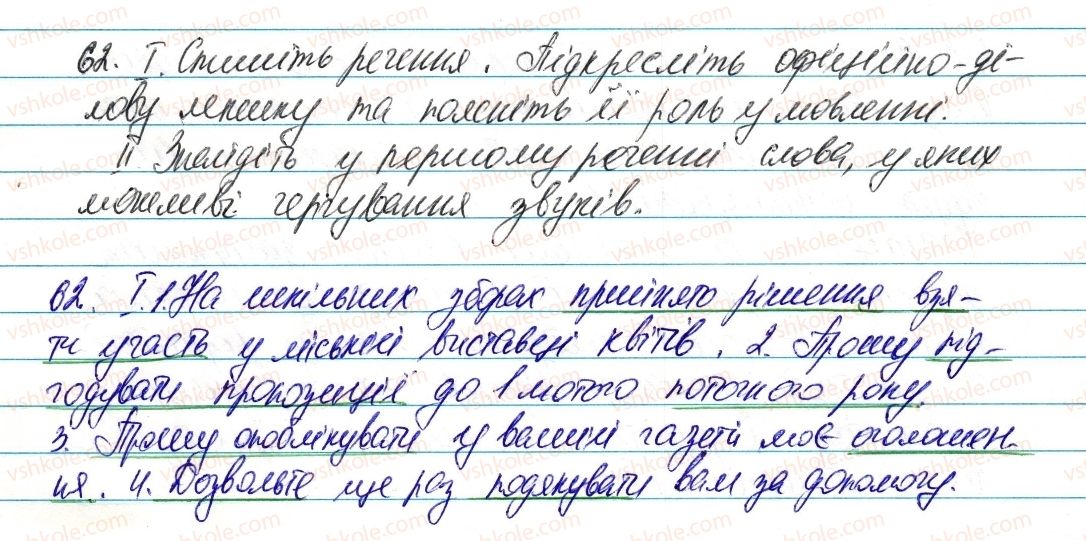 62. І. Спишіть речення. Підкресліть офіційно-ді-
лову лексику та поясніть її роль у мовленні.
ІІ Знайдіть у першому реченні слова, у яких
можливі чергування звуків.
62. І. 1. На шкільних зборах прийнято рішення взя-
ти участь у міській виставці квітів. 2. Прошу під-
годувати пропозиції до 1 лютого поточного року.
3. Прошу опоблікувати у вашій газеті моє оголошен-
ня. 4. Дозвольте ще раз подякувати вам за допомогу.